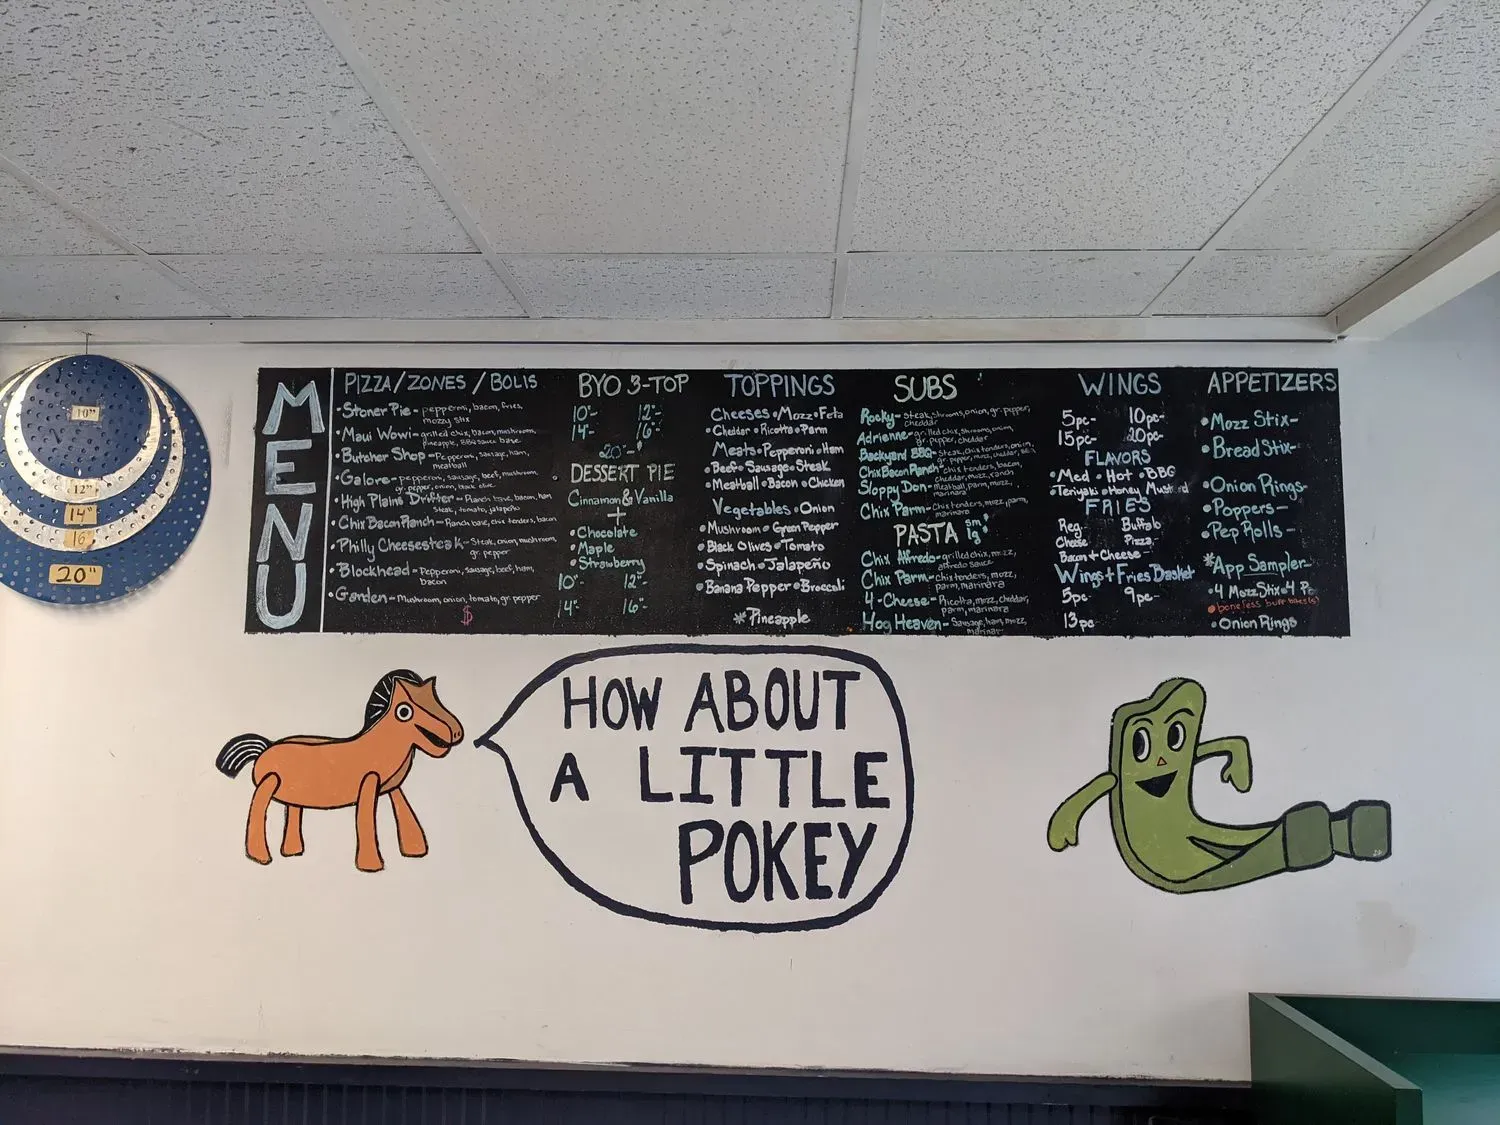 10"
12"
14"
16"
20"
MENU
PIZZA/ZONES/BOLIS
• Stoner Pie - pepperoni, bacon, fries,
mozzy stix
• Maui Wowi - grilled chix, bacon, mushroom,
pineapple, BBQ sauce base
• Butcher Shop - Pepperoni, sausage, ham,
meatball
• Galore - pepperoni, sausage, beef, mushroom,
gr. pepper, onion, black olive
• High Plains Drifter - Ranch base, bacon, ham
Steak, tomato, jalapeño
• Chix Bacon Ranch - Ranch base, chix tenders, bacon
• Philly Cheesesteak - Steak, onion, mushroom,
gr. pepper
• Blockhead - Pepperoni, sausage, beef, ham,
bacon
• Garden - Mushroom, onion, tomato, gr. pepper
$
BYO 3-TOP
10"- 12"-
14"- 16"-
20"-$
DESSERT PIE
Cinnamon & Vanilla
+
• Chocolate
• Maple
• Strawberry
10"- 12"-
14"- 16"-
TOPPINGS
Cheeses • Mozz • Feta
• Cheddar • Ricotta • Parm
Meats • Pepperoni • Ham
• Beef • Sausage • Steak
• Meatball • Bacon • Chicken
Vegetables • Onion
• Mushroom • Green Pepper
• Black Olives • Tomato
• Spinach • Jalapeño
• Banana Pepper • Broccoli
* Pineapple
SUBS
Rocky - Steak, shrooms, onion, gr. pepper,
cheddar
Adrienne - grilled chix, shrooms, onion,
gr. pepper, cheddar
Backyard BBG - Steak, chix tenders, onion,
gr. pepper, mozz, cheddar,
Chix Bacon Ranch - chix tenders, bacon,
cheddar, mozz, ranch
Sloppy Don - Meatball, parm, mozz,
marinara
Chix Parm - chix tenders, mozz, parm,
marinara
PASTA sm $
lg $
Chix Alfredo - grilled chix, mozz,
alfredo sauce
Chix Parm - chix tenders, mozz,
parm, marinara
4-Cheese - Ricotta, mozz, cheddar,
parm, marinara
Hog Heaven - Sausage, ham, mozz,
marinara
WINGS
5pc- 10pc-
15pc- 20pc-
FLAVORS
• Med • Hot • BBG
• Teriyaki • Honey Mustard
FRIES
Reg Buffalo
Cheese Pizza
Bacon + Cheese-
Wings + Fries Basket
5pc- 9pc-
13pc
APPETIZERS
• Mozz Stix-
• Bread Stix-
• Onion Rings-
• Poppers-
• Pep Rolls-
* App Sampler-
• 4 Mozz Stix • 4 Po
• boneless buff bites(5)
• Onion Rings
HOW ABOUT
A LITTLE
POKEY